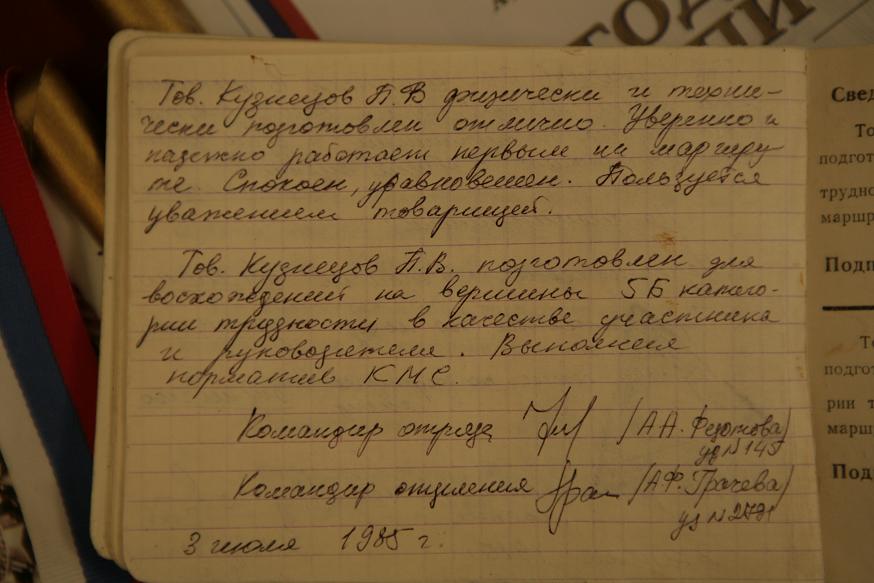 ГОД
Тов. Кузнецов П.В физически и техни-
чески подготовлен отлично. Уверенно и
надежно работает первым на маршру-
те. Спокоен, уравновешен. Пользуется
уважением товарищей.
Тов. Кузнецов П.В. подготовлен для
восхождений на вершины 5Б катего-
рии трудности в качестве участника
и руководителя. Выполнил
норматив КМС.
Командир отряда /А.А. Федотова/
уд №145
Командир отделения /А.Ф. Грачева/
уд №
3 июля 1985 г.
Свед
То
подгот
трудно
маршр
Подп
То
подгот
рии т
марш
Под